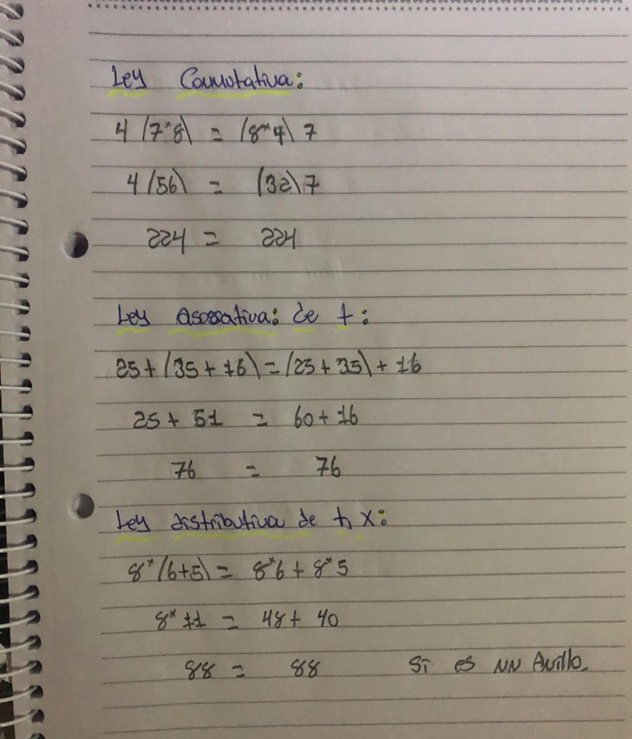 Ley Conmutativa:
4 (7*8) = (8*4) 7
4 (56) = (32) 7
224 = 224
Ley asosativa: de +:
25+(35+16)=(25+35)+16
25+51 = 60+16
76 = 76
Ley distributiva de +, x:
8*(6+5) = 8*6+8*5
8*11 = 48+40
88 = 88 Si es un Anillo.